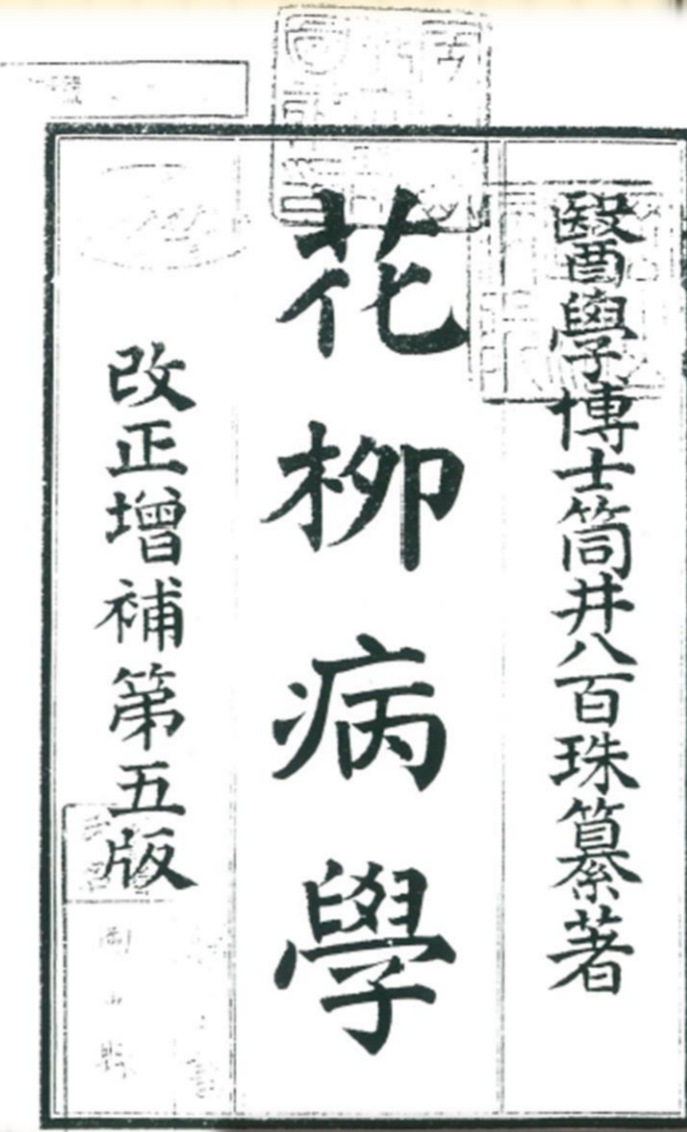 醫學博士筒井八百珠纂著
花柳病學
改正增補第五版
岡山縣